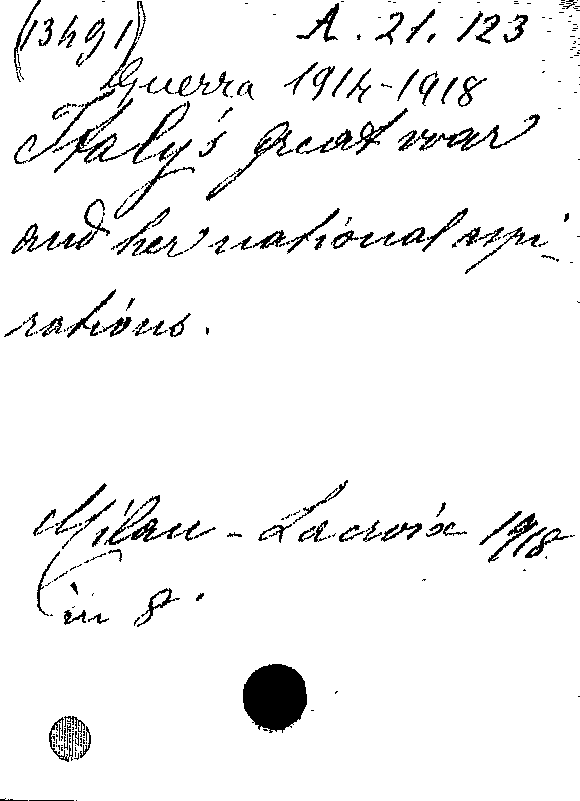 (13491) A. 21. 123
Guerra 1914-1918
Italy's great war
and her national aspi-
rations.
Milan - Lacroix 1918
in 8.